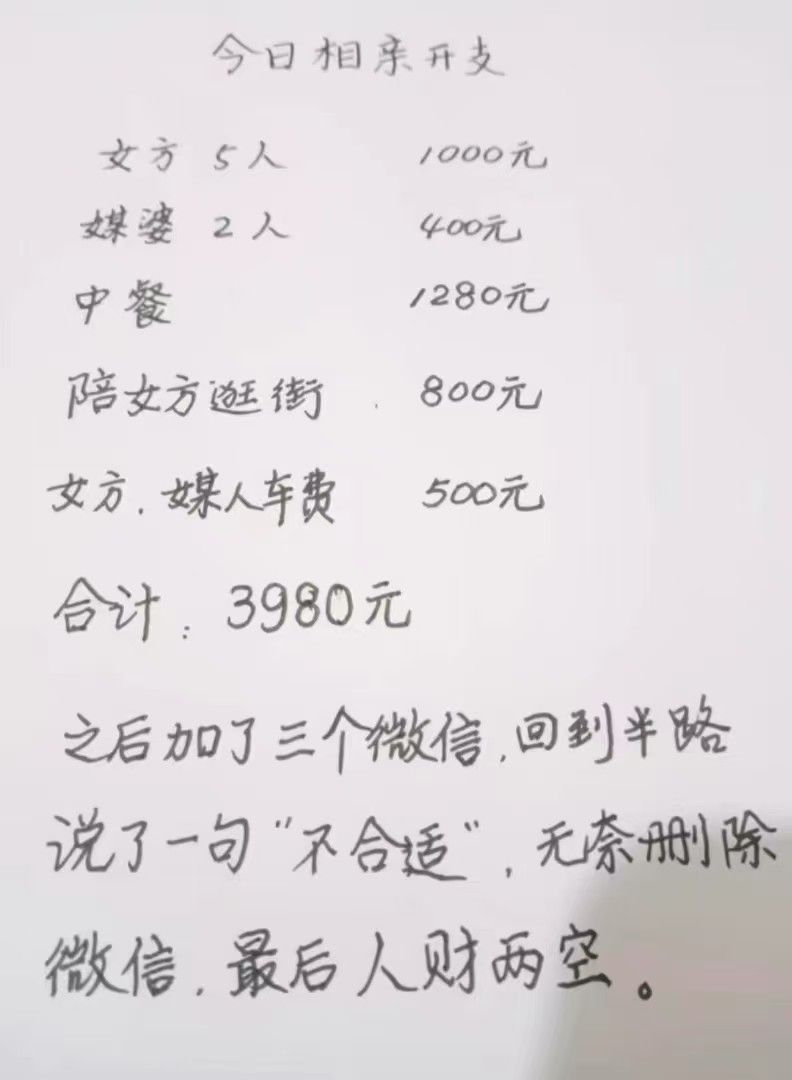 今日相亲开支
女方 5人 1000元
媒婆 2人 400元
中餐 1280元
陪女方逛街 800元
女方.媒人车费 500元
合计:3980元
之后加了三个微信,回到半路
说了一句"不合适",无奈删除
微信,最后人财两空。